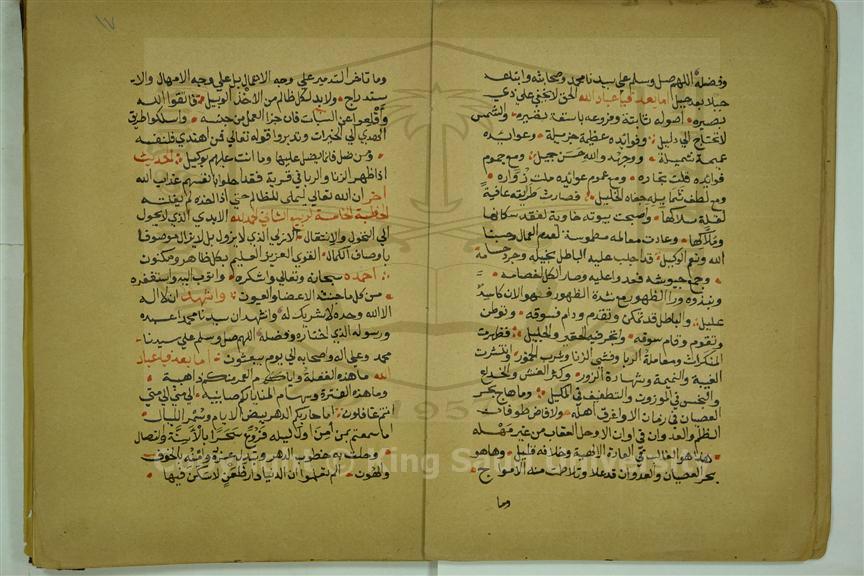 وفضله اللهم صل وسلم على سيدنا محمد وصحابته
جيلا بعد جيل اما بعد فيا عباد الله الحق لا يخفى على ذي
بصيره اصوله ثابتة وفروعه باسقة نضيره والشمس
لا تحتاج الى دليل وفوائده عظيمة جزيلة وعوايده
عميمة شميلة ووجهه والله حسن جميل ومع جموم
فوائده قلت تجاره ومع عموم عوائده ملت زواره
ومع لطف شمايله جفاه الخليل فصارت طرايقه عافية
لقلة سلاكها واصبحت بيوته خاوية لفقد سكانها
وملاكها وعادت معالمه مطموسة لعدم العمال وحسبنا
الله ونعم الوكيل قد اجلب عليه الباطل بخيله
وجمع جيوشه فعدا عليه وصد الكل
ونبذوه وراء الظهور من شدة الظهور فهو الان كاسد
عليل والباطل قد تمكن وتقدم ودام فسوقه وتوطن
وتقوم وقام سوقه واتجر فيه الحقير والجليل فظهرت
المنكرات ومعاملة الربا وفشى الزنا وشرب الخمور وانتشرت
الغيبة والنميمة وشهادة الزور وكثر الغش والخديع
والبخس في الموزون والتطفيف في المكيل وما هاج بحر
العصيان في زمان الا واغرق اهله ولا فاض طوفان
الظلم والعدوان في اوان الا وحل العقاب من غير مهله
هذا هو الغالب في العادة الالهية وخلافه قليل وها هو
بحر العصيان والعدوان قد علا وتلاطمت منه الامواج
وما
١٧
وما تاخر التدمير على وجه الاهمال بل على وجه الامهال والا
ستدراج ولا بد لكل ظالم من الاخذ الوبيل فاتقوا الله
واقلعوا عن السيئات فان جزا العمل من جنسه واسلكوا طريق
الهدى الى الخيرات وتدبروا قوله تعالى فمن اهتدى فلنفسه
ومن ضل فانما يضل عليها وما انت عليهم بوكيل الحديث
اذا ظهر الزنا والربا في قرية فقد احلوا بانفسهم عذاب الله
اخر ان الله تعالى ليملي للظالم حتى اذا اخذه لم يفلته
الخطبة الخامسة لربيع الثاني الحمد لله الابدي الذي لا يحول
الى التحول والانتقال الازلي الذي لا يزول بل لا يزال موصوفا
باوصاف الكمال القوي العزيز العليم بكل ظاهر ومكنون
احمده سبحانه وتعالى واشكره واتوب اليه واستغفره
من كل ما جنته الاعضا والعيون واشهد ان لا اله
الا الله وحده لا شريك له واشهد ان سيدنا محمدا عبده
ورسوله الذي اختاره وفضله اللهم صل وسلم على سيدنا
محمد وعلى اله واصحابه الى يوم يبعثون اما بعد فيا عباد
الله ما هذه الغفلة وايام العمر منكم ذاهبة
وما هذه الفترة وسهام المنايا لكم صايبة الى متى الى متى
انتم غافلون اما حاربكم الدهر ببيض الايام وسمر الليال
اما سمعتم بمن امن اول ليله فروع سحرا بالاسنة والنصال
وحلت به خطوب الدهر وتبدل عزه وامنه بالخوف
والهون الم تعلموا ان الدنيا دار قلعة لا يتمكن فيها